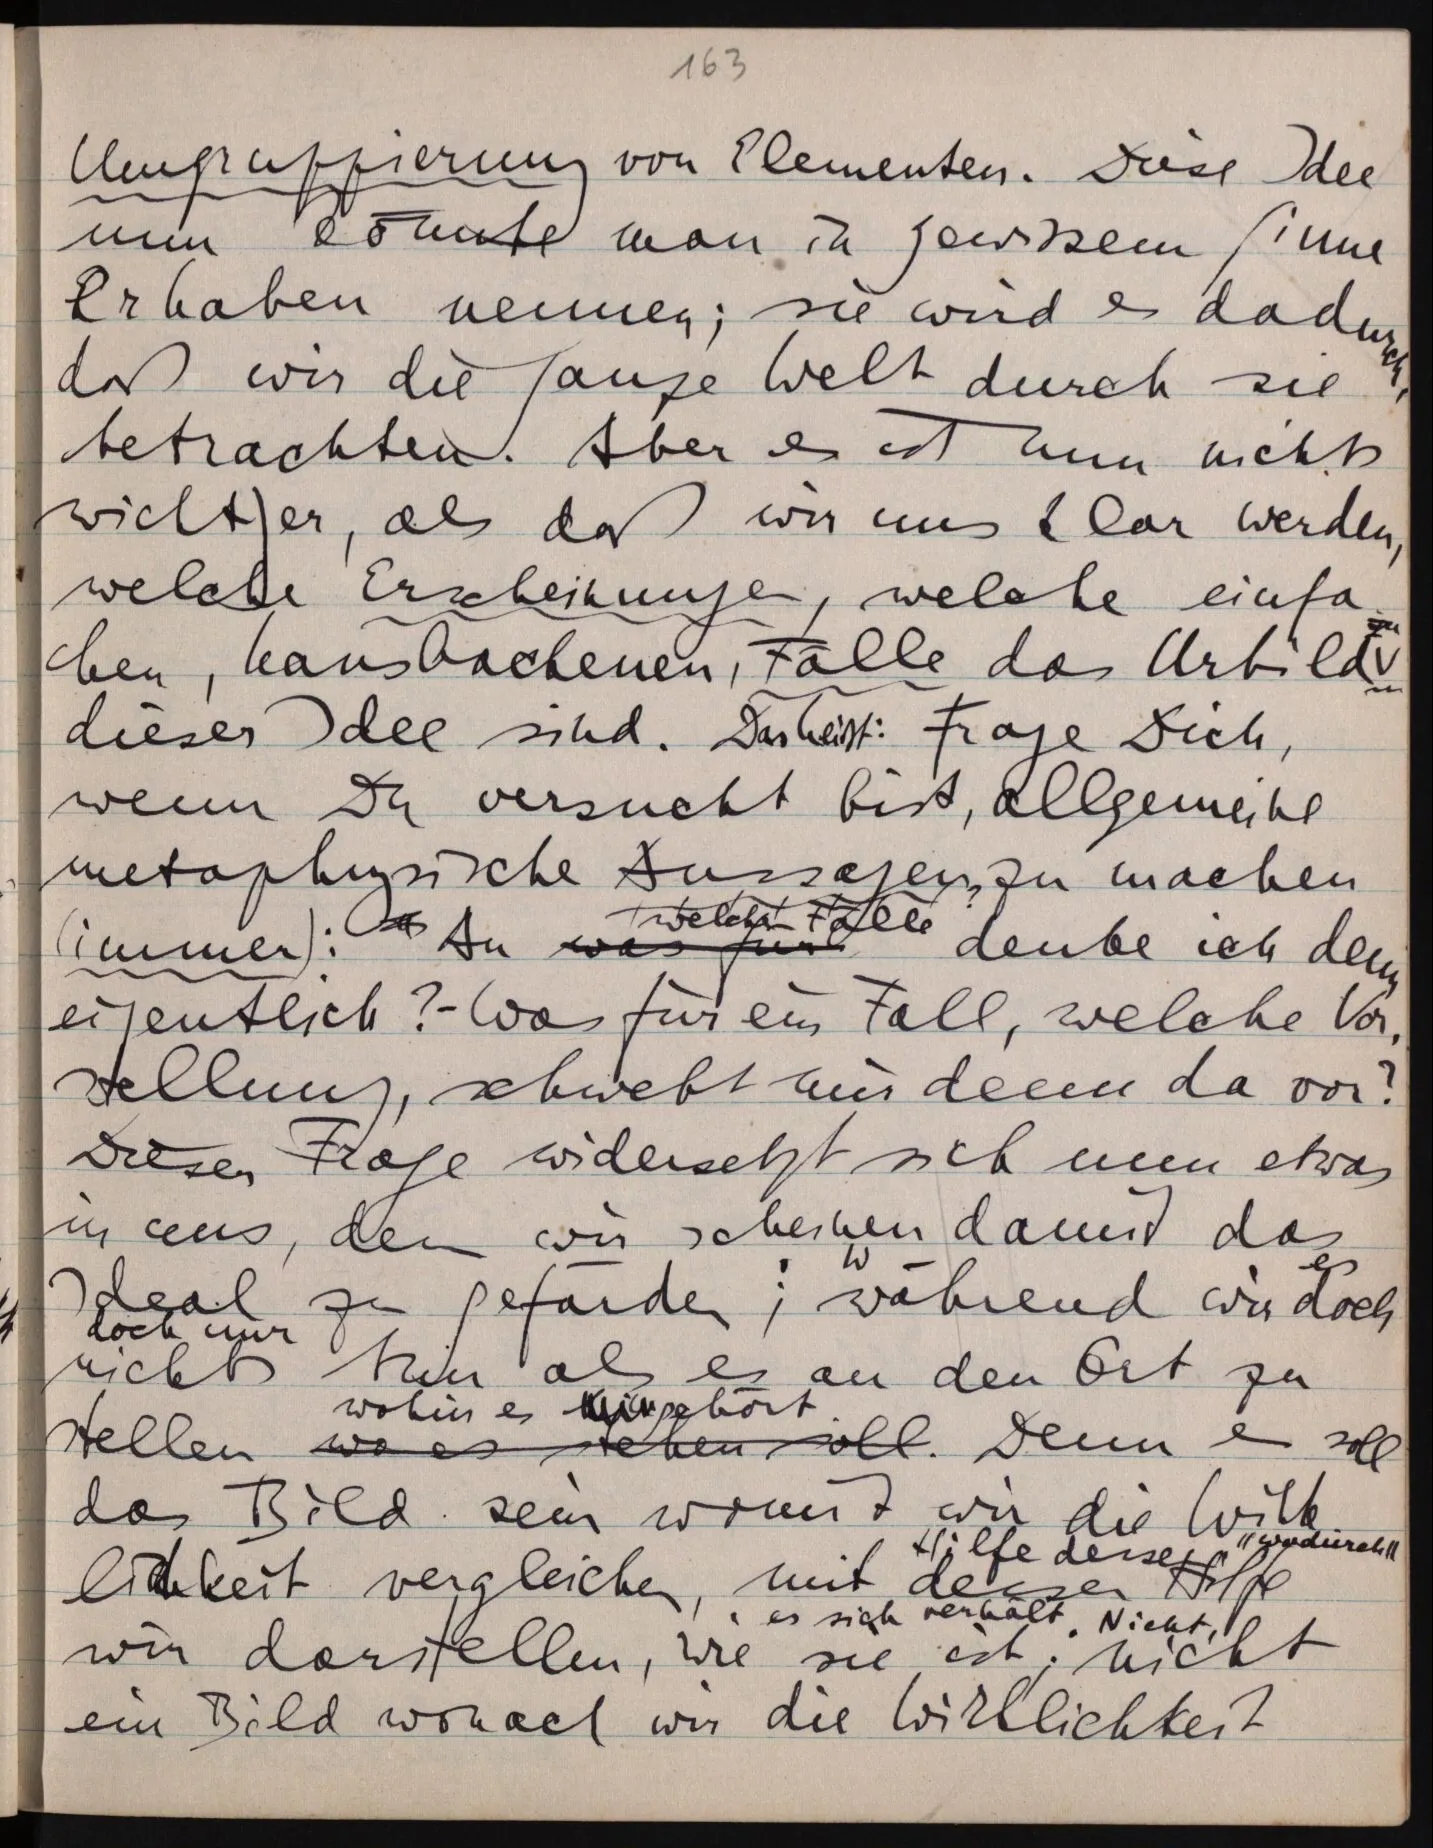 163
Umgruppierung von Elementen. Diese Idee
nun könnte man in gewissem Sinne
Erhaben nennen; sie wird es dadurch,
daß wir die ganze Welt durch sie
betrachten. Aber es ist nun nichts
wichtger, als daß wir uns klar werden,
welche Erscheinungen, welche einfa-
chen, hausbackenen, Fälle das Urbild
zu
dieser Idee sind. Das heißt: Frage Dich,
wenn Du versucht bist, allgemeine
metaphysische Aussagen zu machen
welche Fälle
(immer): An was für denke ich denn
eigentlich? – Was für ein Fall, welche Vor-
stellung, schwebt mir denn da vor?
Dieser Frage widersetzt sich nun etwas
in uns, denn wir scheinen damit das
W es
Ideal zu gefärden; während wir doch
doch nur
nichts tun als es an den Ort zu
wohin es gehört
stellen wo es stehen soll. Denn es soll
das Bild sein womit wir die Wirk
Hilfe dessen "wodurch"
lichkeit vergleichen, mit dessen Hilfe
es sich verhält. Nicht,
wir darstellen, wie sie ist; nicht
ein Bild wonach wir die Wirklichkeit